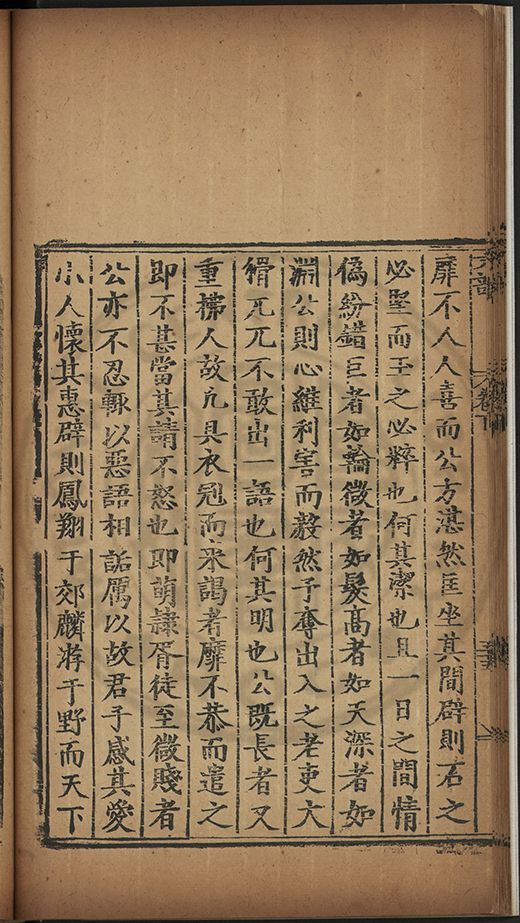 卷下
靡不人人喜而公方湛然匡坐其間辟則石之
必堅而玉之必粹也何其潔也且一日之間情
偽紛錯巨者如輪微者如髮高者如天深者如
淵公則心維利害而毅然予奪出入之老吏大
猾兀兀不敢出一語也何其明也公既長者又
重拂人故凢具衣冠而來謁者靡不恭而遣之
即不甚當其請不怒也即萌隸胥徒至微賤者
公亦不忍輙以惡語相詬厲以故君子感其愛
小人懷其惠辟則鳳翔于郊麟游于野而天下